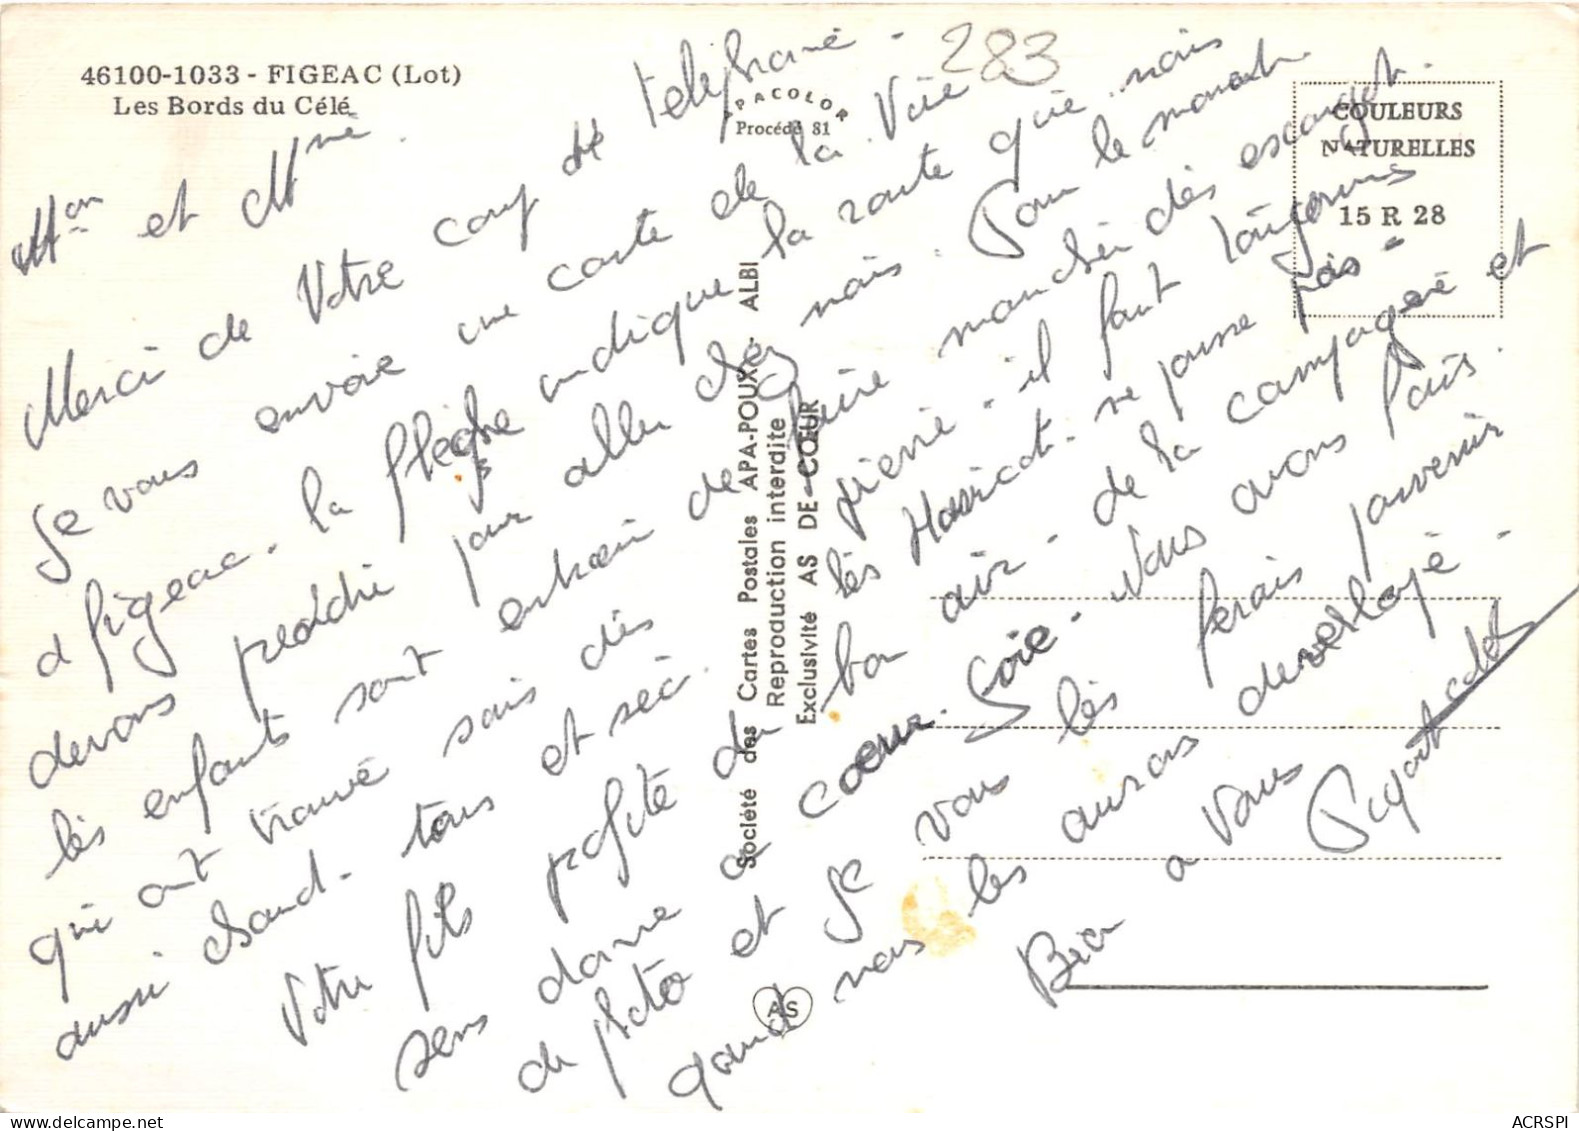 46100-1033 - FIGEAC (Lot)
Les Bords du Célé
APACOLOR
Procédé 81
COULEURS
NATURELLES
15 R 28
283
Mon et Mme
Merci de Votre coup de telephone -
Je vous envoie une carte de la Ville
d figeac - la flèche indique la route que nous
devons preddre pour aller chez nous. Pour le moment
les enfants sont entrain de faire manger des escargot.
qui ont trouvé sous des pierre - il faut toujours
aussi chaud - tous et sec. les Haricot - ne pousse pas -
Votre fils profite du bon air - de la campagne et
sens donne a coeur Joie - Nous avons pris
du photo et Je vous les ferais parvenir
quand nous les aurons develloyé -
Bien a Vous
Société des Cartes Postales APA-POUX - ALBI
Reproduction interdite
Exclusivité AS DE CŒUR
AS
ACRSPI